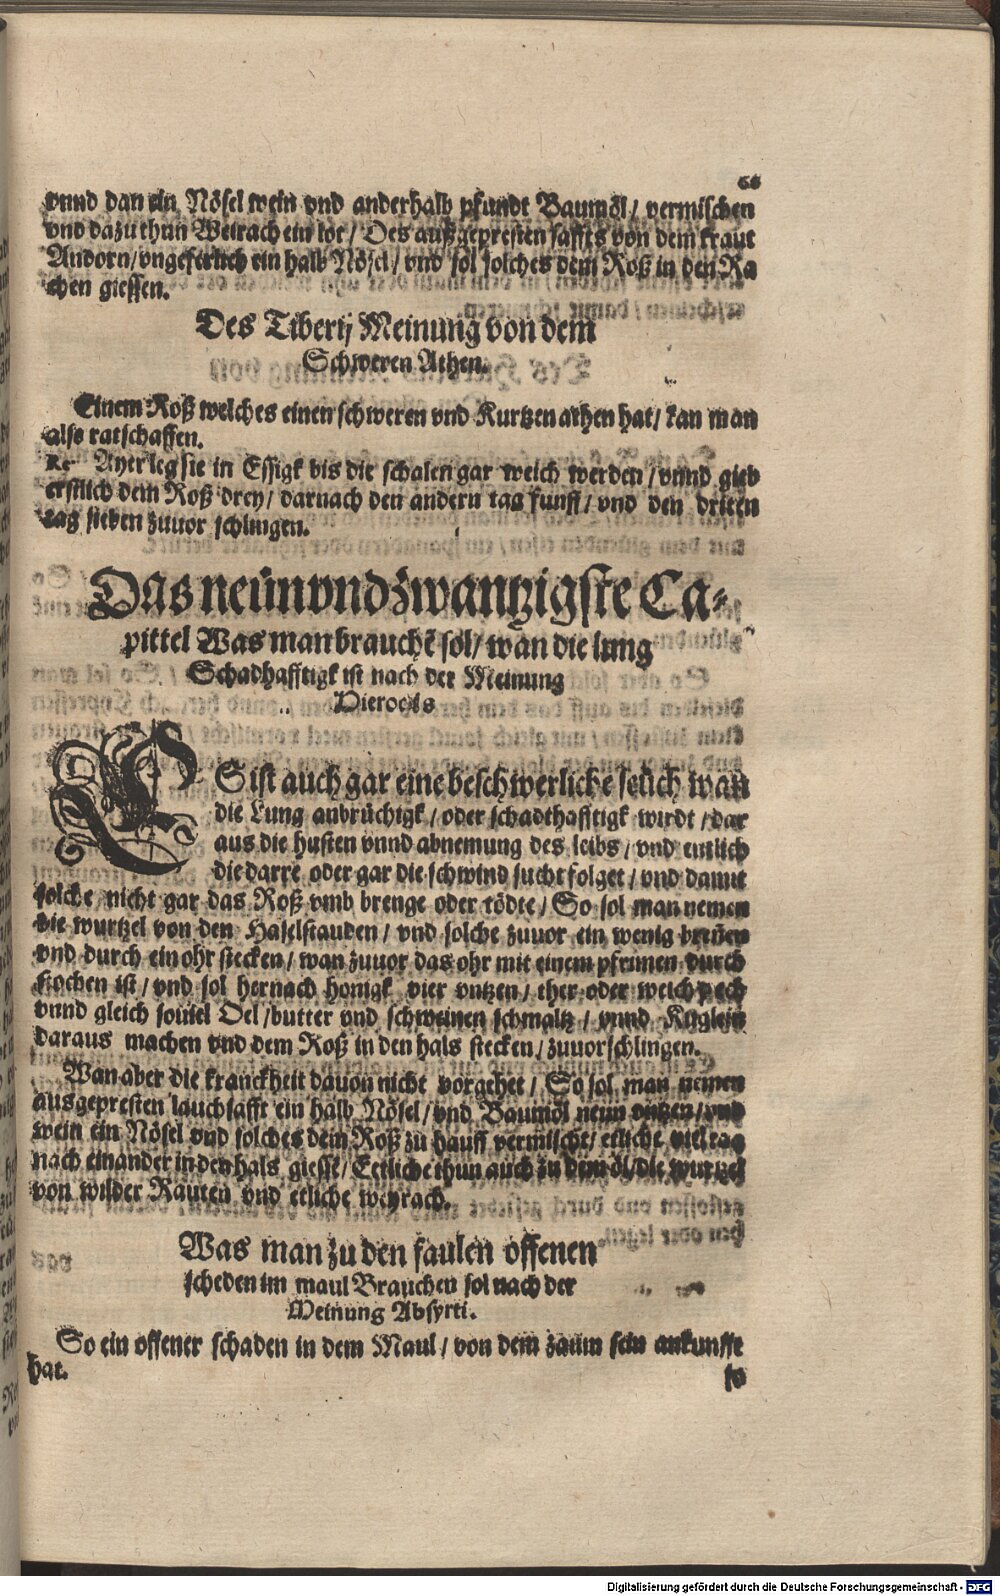 66
vnnd dan ein Nösel wein vnd anderhalb pfundt Baumöl / vermischen
vnd dazu thun Weirach ein lot / Des außgepresten saffts von dem kraut
Andorn / vngeferlich ein halb Nösel / vnd sol solches dem Roß in den Ra
chen giessen.
Des Tiberij Meinung von dem
Schweren Athen.
Einem Roß welches einen schweren vnd Kurtzen athen hat / kan man
also ratschaffen.
Re Ayer leg sie in Essigk bis die schalen gar weich werden / vnnd gieb
erstlich dem Roß drey / darnach den andern tag funff / vnd den dritten
tag sieben zuuor schlingen.
Das neünvndzwantzigste Ca-
pittel Was man brauchē sol / wan die lung
Schadhafftigk ist nach der Meinung
Hieroclis
ES ist auch gar eine beschwerliche seüch wan
die Lung anbrüchigk / oder schadthafftigk wirdt / dar
aus die husten vnnd abnemung des leibs / vnd entlich
die darre oder gar die schwindsucht folget / vnd damit
solche / nicht gar das Roß vmb brenge oder tödte / So sol man nemen
die wurtzel von den Haselstauden / vnd solche zuuor ein wenig breüen
vnd durch ein ohr stecken / wan zuuor das ohr mit einem pfrimen durch
stochen ist / vnd sol hernach honigk vier vntzen / ther oder weich pech
vnnd gleich souiel Oel / butter vnd schweinen schmaltz / vnnd Kuglein
daraus machen vnd dem Roß in den hals stecken / zuuorschlingen.
Wan aber die kranckheit dauon nicht vorgehet / So sol man nemen
ausgepresten lauchsafft ein halb Nösel / vnd Baumöl neun vntzen / vnd
wein ein Nösel vnd solches dem Roß zu hauff vermischt / etliche viel tag
nach einander in den hals giesse / Eettliche thun auch zu dem öl / die wurtzel
von wilder Rauten vnd etliche weyrach.
Was man zu den faulen offenen
scheden im maul Brauchen sol nach der
Meinung Absyrti.
So ein offener schaden in dem Maul / von dem zaum sein ankunfft
hat.
so
Digitalisierung gefördert durch die Deutsche Forschungsgemeinschaft - DFG